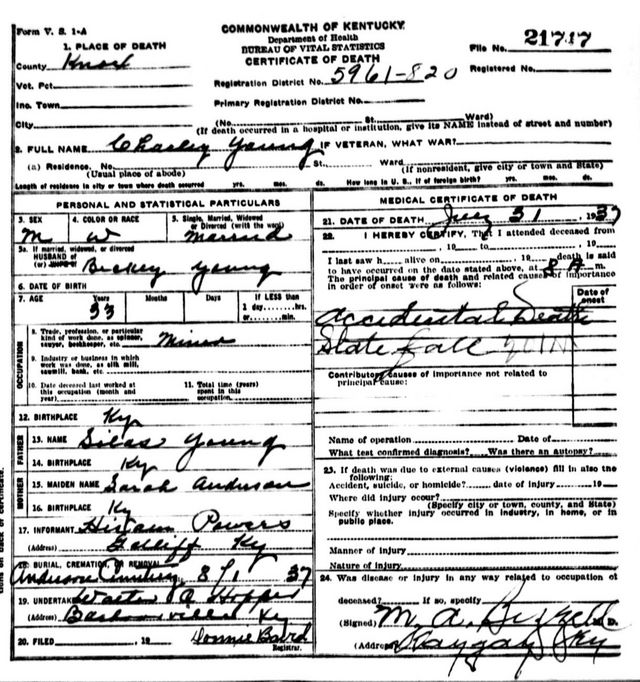 Form V. S. 1-A
COMMONWEALTH OF KENTUCKY
Department of Health
BUREAU OF VITAL STATISTICS
CERTIFICATE OF DEATH
File No. 21747
Registered No.
1. PLACE OF DEATH
County Knox
Vot. Pct.
Inc. Town
City
Registration District No. 5961-820
Primary Registration District No.
(No. St. Ward)
(If death occurred in a hospital or institution, give its NAME instead of street and number)
2. FULL NAME Charley Young IF VETERAN, WHAT WAR?
(a) Residence, No. St., Ward
(Usual place of abode) (If nonresident, give city or town and State)
Length of residence in city or town where death occurred yrs. mos. ds. How long in U. S., if of foreign birth? yrs. mos. ds.
PERSONAL AND STATISTICAL PARTICULARS
3. SEX M
4. COLOR OR RACE W
5. Single, Married, Widowed or Divorced (write the word) Married
5a. If married, widowed, or divorced
HUSBAND of
(or) WIFE of Beckey Young
6. DATE OF BIRTH
7. AGE Years 53 Months Days If LESS than
1 day, hrs.
or min.
OCCUPATION
8. Trade, profession, or particular
kind of work done, as spinner,
sawyer, bookkeeper, etc. Miner
9. Industry or business in which
work was done, as silk mill,
sawmill, bank, etc.
10. Date deceased last worked at
this occupation (month and
year)
11. Total time (years)
spent in this
occupation
12. BIRTHPLACE Ky
FATHER
13. NAME Silas Young
14. BIRTHPLACE Ky
MOTHER
15. MAIDEN NAME Sarah Anderson
16. BIRTHPLACE Ky
17. INFORMANT Hiram Powers
(Address) Gatliff Ky
18. BURIAL, CREMATION, OR REMOVAL
Anderson Cemetery 8/1 37
19. UNDERTAKER Walter A Hopper
(Address) Barbourville Ky
20. FILED , 19 Donnie Baird
Registrar.
MEDICAL CERTIFICATE OF DEATH
21. DATE OF DEATH July 31 1937
22. I HEREBY CERTIFY, That I attended deceased from
, 19 to , 19
I last saw h alive on , 19 death is said
to have occurred on the date stated above, at 8 A m.
The principal cause of death and related causes of importance
in order of onset were as follows:
Date of
onset
Accidental Death
Slate fall
Contributory causes of importance not related to
principal cause:
Name of operation Date of
What test confirmed diagnosis? Was there an autopsy?
23. If death was due to external causes (violence) fill in also the
following:
Accident, suicide, or homicide? date of injury 19
Where did injury occur?
(Specify city or town, county, and State)
Specify whether injury occurred in industry, in home, or in
public place.
Manner of injury
Nature of injury
24. Was disease or injury in any way related to occupation of
deceased? If so, specify
(Signed) M. A. M. D.
(Address) Ky
back of certificate.